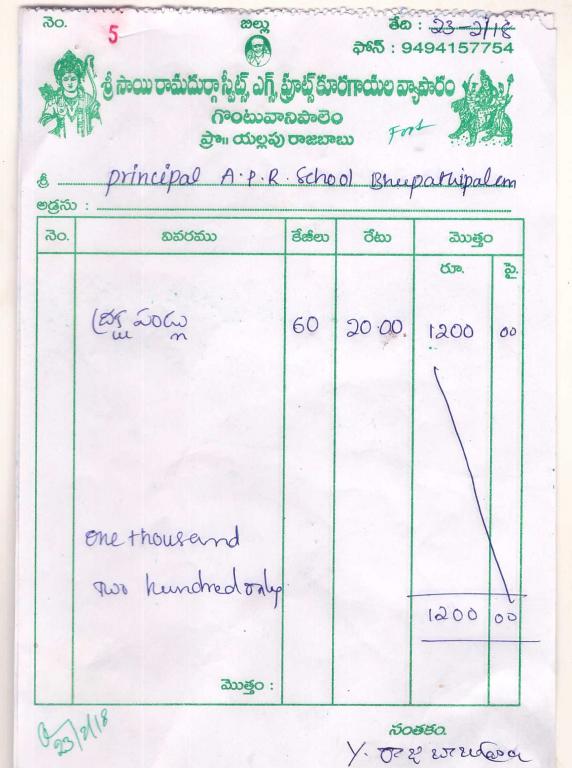 నెం. 5 బిల్లు తేది : 23-2/18
ఫోన్ : 9494157754
శ్రీ సాయి రామదుర్గా స్వీట్స్, ఎగ్స్, ఫ్రూట్స్ కూరగాయల వ్యాపారం
గొంటువానిపాలెం
ప్రొ॥ యల్లపు రాజబాబు
శ్రీ principal A.P.R. School Bhupathipalem
అడ్రసు :
నెం. వివరము కేజీలు రేటు మొత్తం
రూ. పై.
ద్రాక్ష పండ్లు 60 20.00 1200 00
one thousand
two hundred only
1200 00
మొత్తం :
23/2/18
సంతకం.
Y. రాజ బాబు